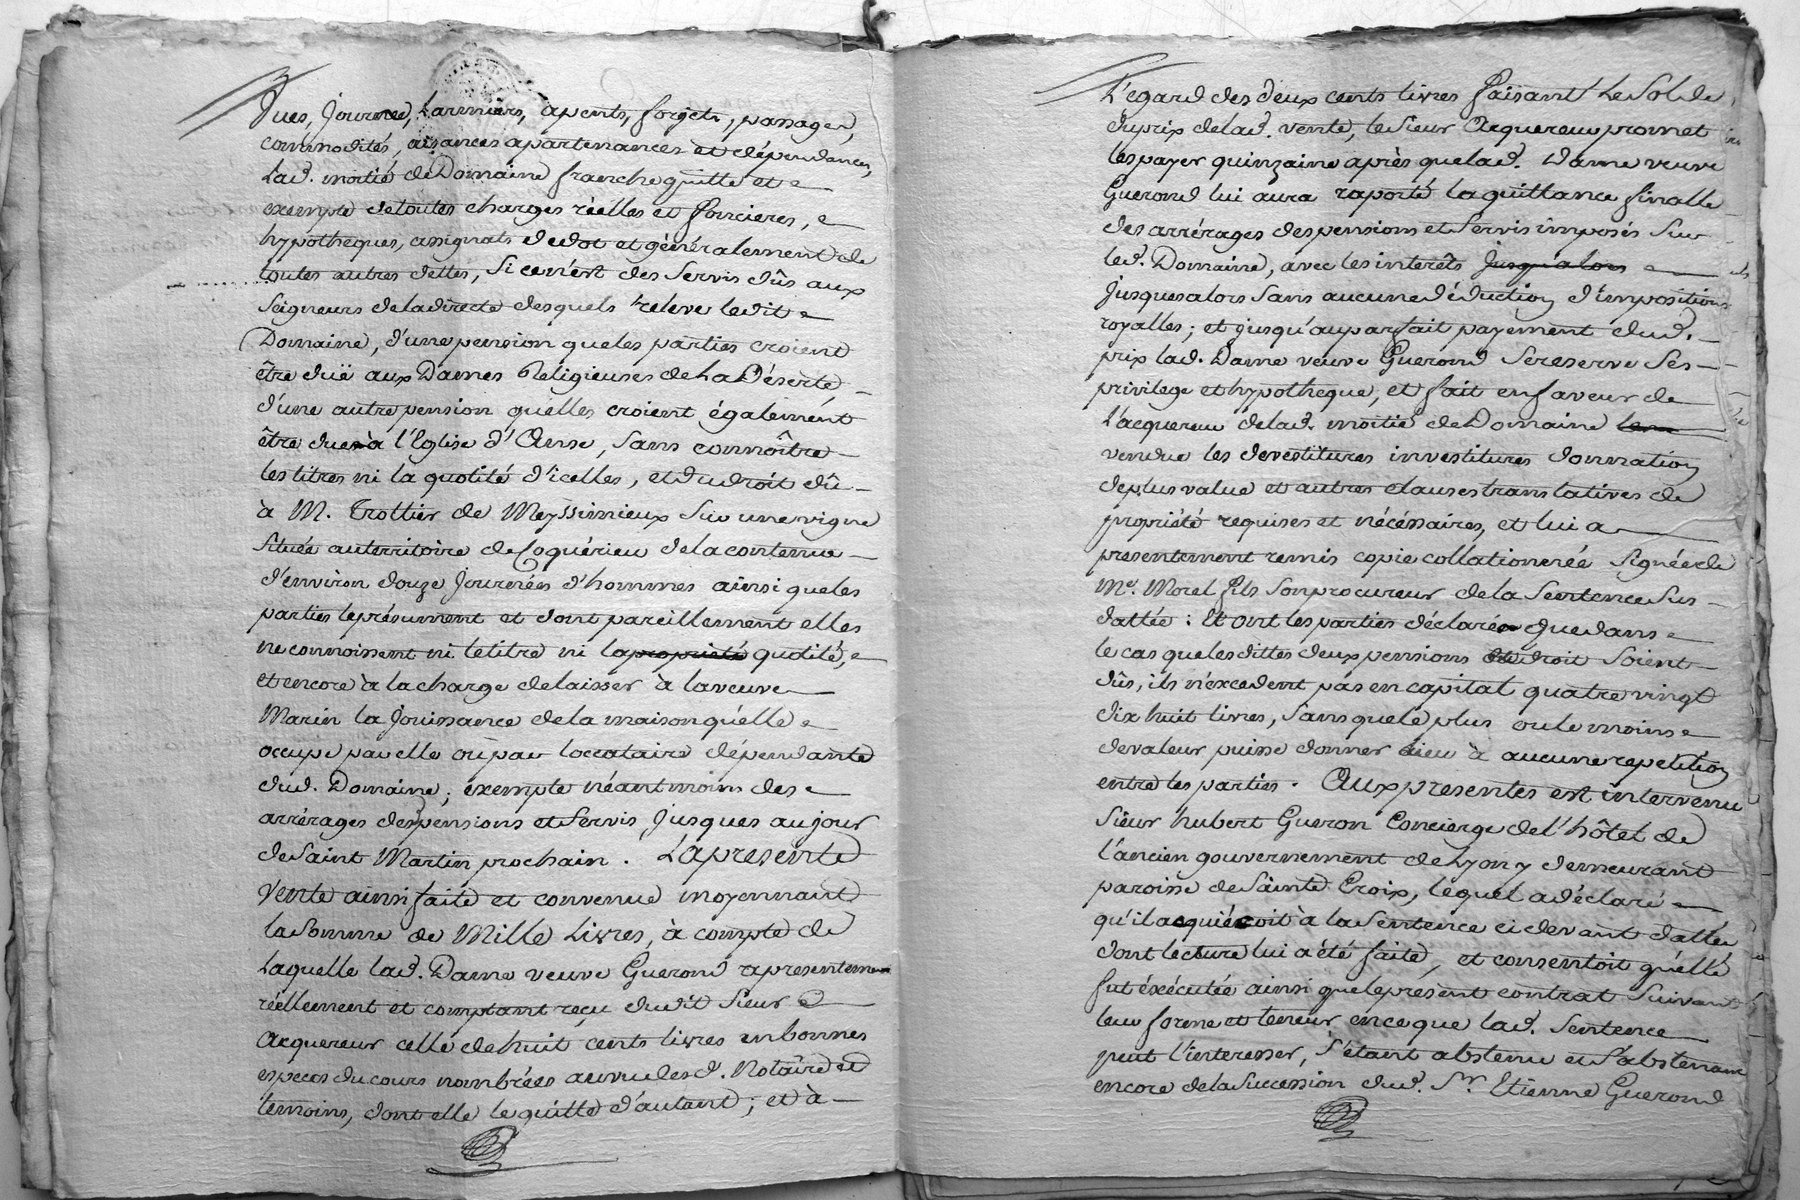 Vues, Journes, Larmiers, apents, forjets, passages,
commodités, aisances apartenances et dépendances,
Lad. moitié de Domaine franche quitte et
exempte de toutes charges réelles et foncieres,
hypotheques, assignats de dot et généralement de
toutes autres dettes, Si ce n'est des Servis dûs aux
Seigneurs de la directe desquels releve ledit
Domaine, d'une pension que les parties croient
être düe aux Dames Religieuses de La Déserte,
d'une autre pension quelles croient également
être due à l'Eglise d'Anse, Sans connoître
les titres ni la quotité d'icelles, et du droit dû
à M. Trottier de Meyssimieux Sur une vigne
Située au territoire de Coquérieu de la contenue
d'environ douze Journées d'hommes ainsi que les
parties le présument et dont pareillement elles
ne connoissent ni le titre ni la propriété quotité,
et encore à la charge de laisser à la veuve
Marin la Jouissance de la maison qu'elle
occupe par elle ou par locataire dépendante
dud. Domaine; exempte néantmoins des
arrérages des pensions et Servis Jusques au jour
de Saint Martin prochain. La presente
Vente ainsi faite et convenue moyennant
la Somme de Mille Livres, à compte de
Laquelle lad. Dame veuve Guerond a presentemen
réellement et comptant reçu dudit Sieur
Acquereur celle de huit cents livres en bonnes
especes du cours nombrées au vu les d. Notaire et
temoins, dont elle le quitte d'autant; et à
L'egard des deux cents livres faisant Le Solde
du prix de lad. vente, le Sieur Acquereur promet
les payer quinzaine après que lad. Dame veuve
Guerond lui aura raporté la quittance finalle
des arrérages des pensions et Servis imposés Sur
led. Domaine, avec les interêts Jusqu'alors
Jusques alors Sans aucune déduction d'impositions
royalles; et jusqu'au parfait payement dud.
prix lad. Dame veuve Guerond Se reserve Ses
privilege et hypotheque, et fait en faveur de
L'acquereur de lad. moitié de Domaine
vendue les devestitures investitures donnation
de plus value et autres clauses translatives de
propriété requises et nécéssaires, et lui a
presentement remis copie collationnée Signée de
Me. Morel fils Son procureur de la Sentence Sus
dattée: Et ont les parties déclaré que dans
le cas que les dittes deux pensions et droit Soient
dûs, ils n'excedent pas en capital quatre vingt
dix huit livres, Sans que le plus ou le moins
de valeur puisse donner lieu à aucune repetition
entre les parties. Aux presentes est intervenu
Sieur hubert Gueron Concierge de l'hôtel de
l'ancien gouvernement de Lyon y demeurant
paroisse de Sainte Croix, lequel a déclaré
qu'il acquiésçoit à la Sentence ci devant dattée
dont lecture lui a été faite, et consentoit qu'elle
fut éxécutée ainsi que le présent contrat Suivant
leur forme et teneur, en ce que lad. Sentence
peut l'interesser, S'étant abstenu et S'abstenant
encore de la Succession dud. Sr. Etienne Guerond